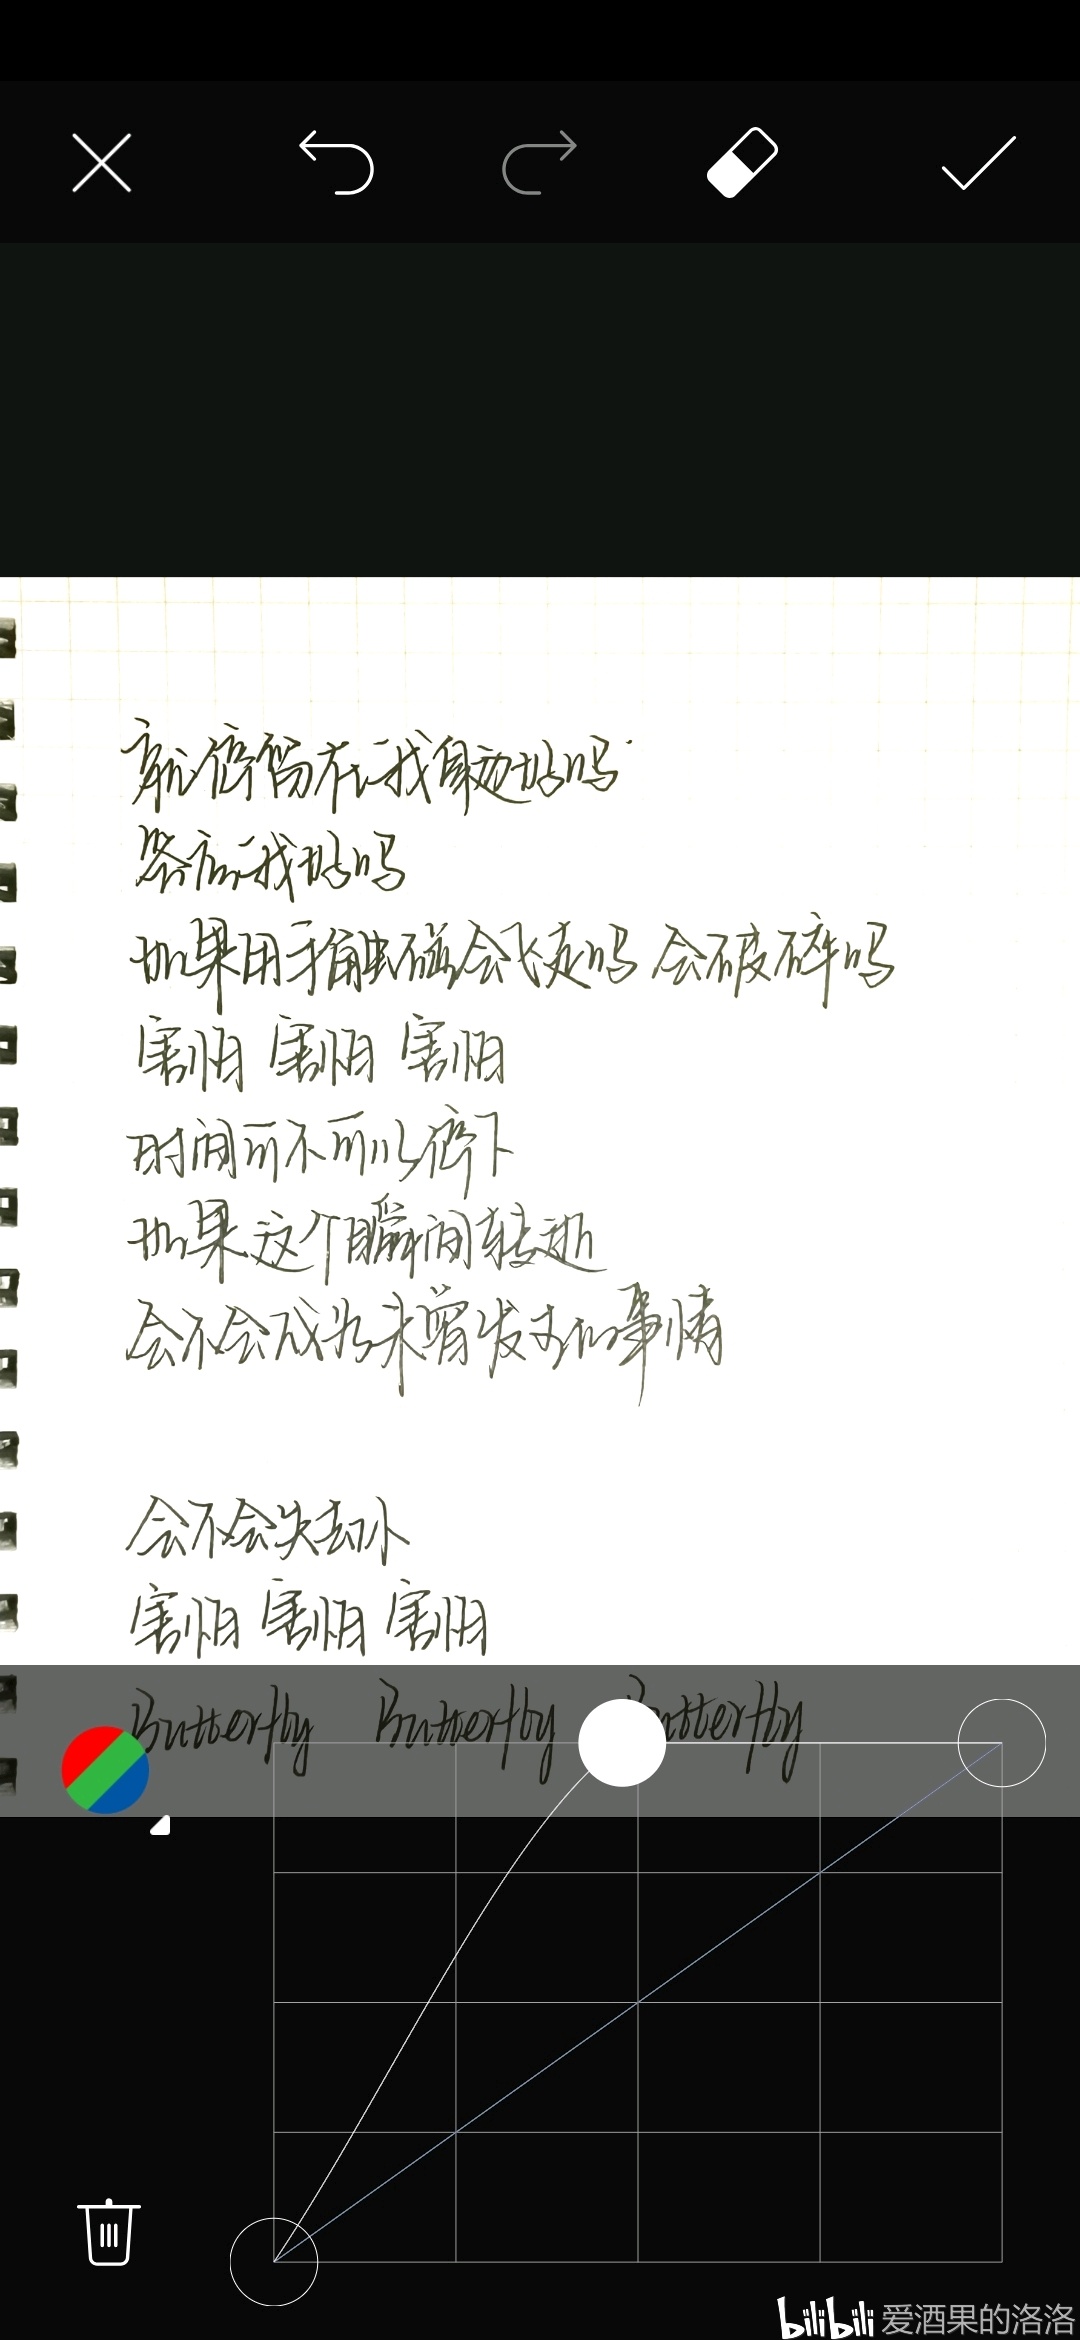 就停留在我身边好吗
答应我好吗
如果用手触碰会飞走吗 会破碎吗
害怕 害怕 害怕
时间可不可以停下
如果这个瞬间转逝
会不会成为未曾发生的事情
会不会失去你
害怕 害怕 害怕
Butterfly Butterfly Butterfly
bilibili 爱酒果的洛洛